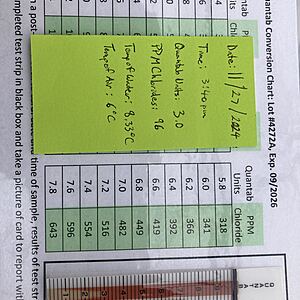 Quantab Conversion Chart: Lot #4272A, Exp. 09/2026
Date: 11/27/2024
Time: 3:40pm
Quantab Units: 3.0
PPM Chlorides: 96
Temp of Water: 8.33°C
Temp of Air: 6°C
Quantab
Units
PPM
Chloride
5.8 318
6.0 341
6.2 366
6.4 392
6.6 419
6.8 449
7.0 482
7.2 516
7.4 554
7.6 596
7.8 643
QUANTAB
time of sample, results of test
mpleted test strip in black box and take a picture of card to report with